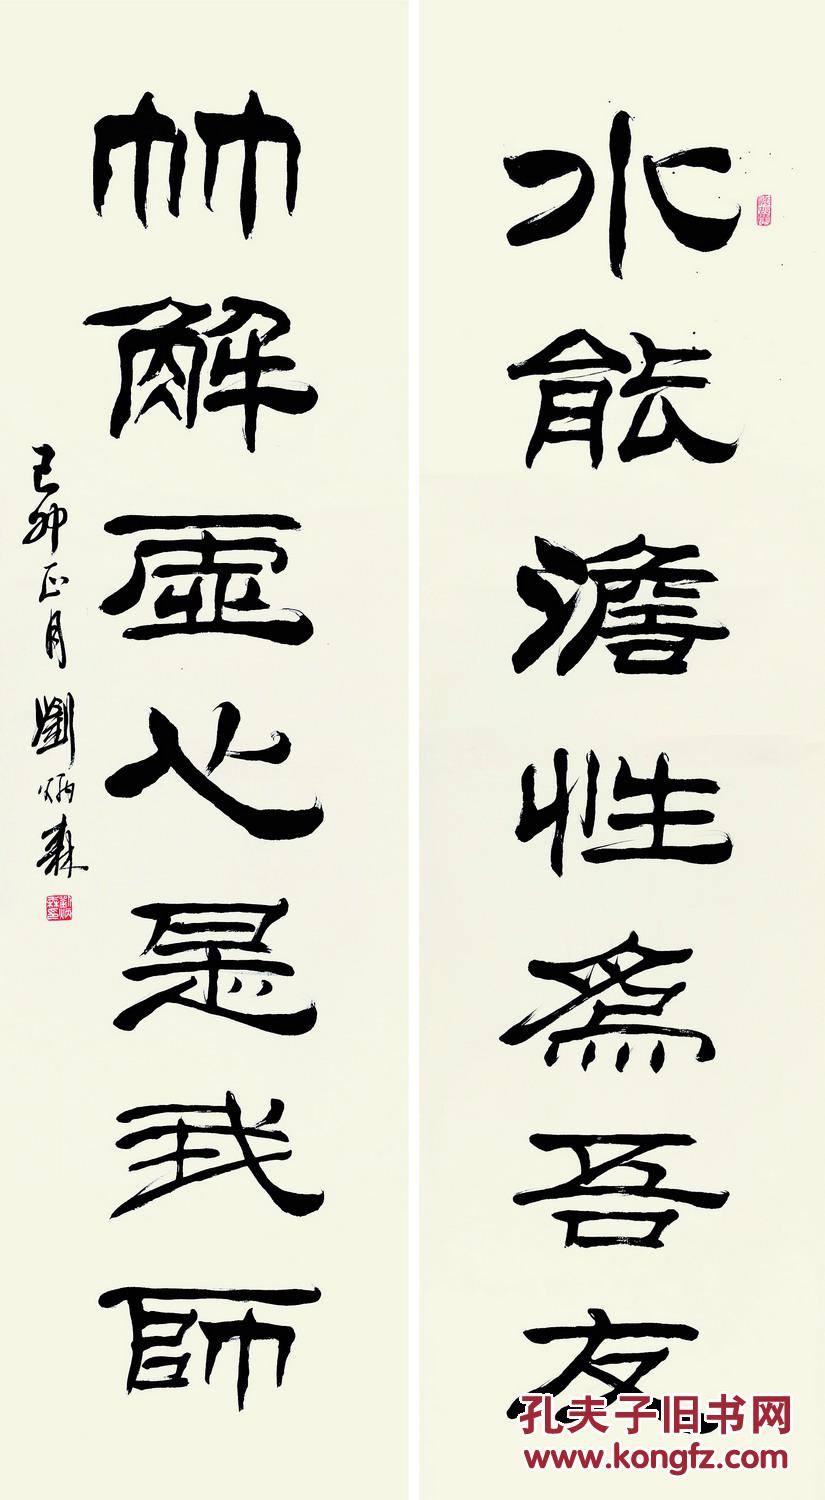 水能澹性為吾友
竹解虛心是我師
己卯正月 劉炳森
孔夫子旧书网
www.kongfz.com